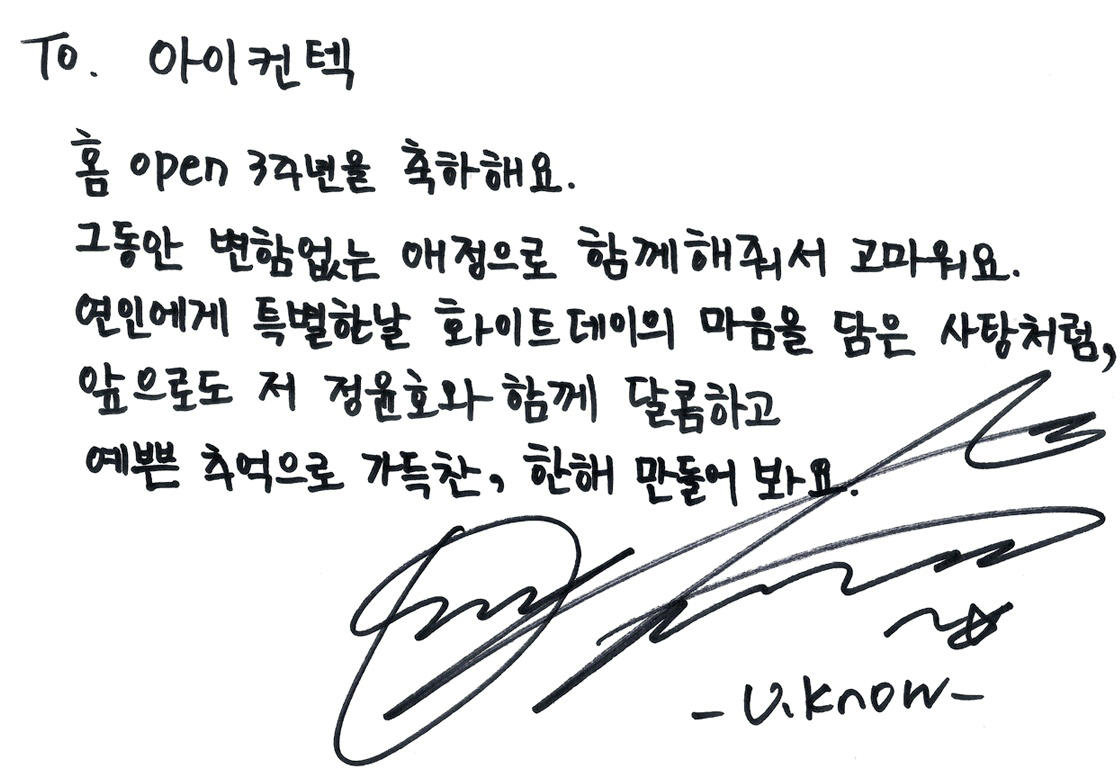 To. 아이컨텍
홈 open 3주년을 축하해요.
그동안 변함없는 애정으로 함께해줘서 고마워요.
연인에게 특별한날 화이트데이의 마음을 담은 사탕처럼,
앞으로도 저 정윤호와 함께 달콤하고
예쁜 추억으로 가득찬, 한해 만들어 봐요.
-U.Know-